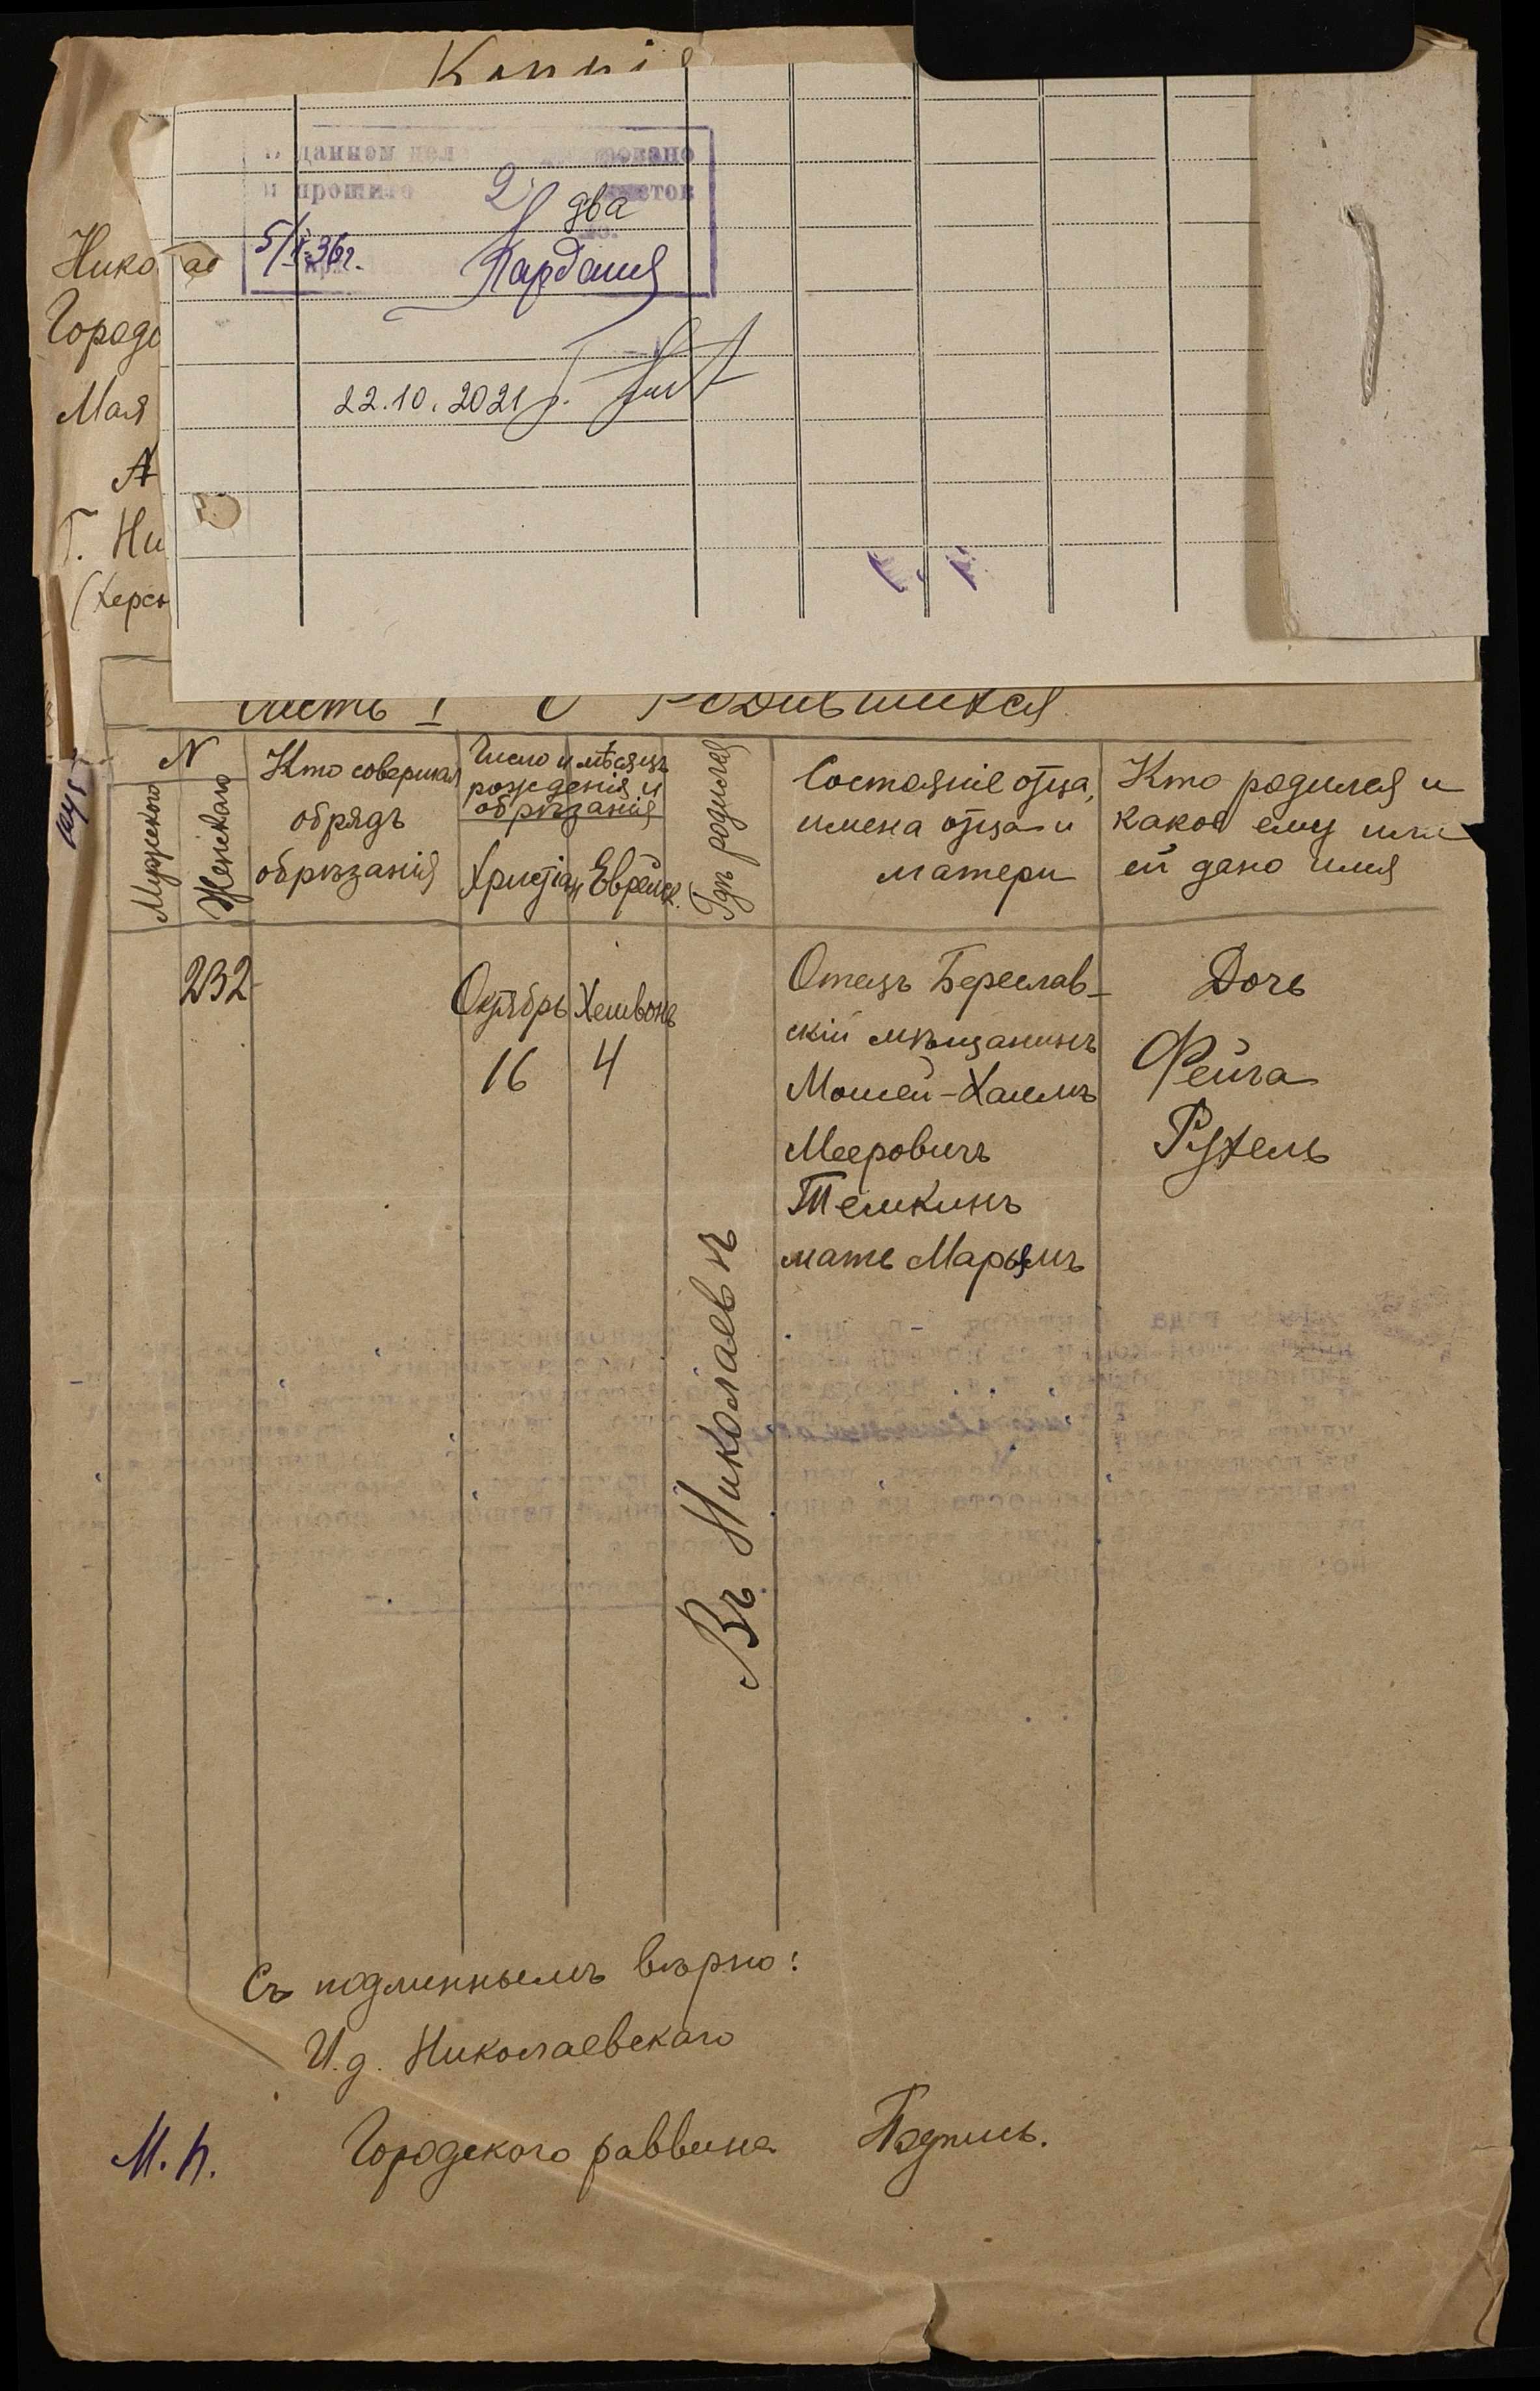 Копиі
данном
прошито
два
5/X-36г.
22.10.2021 г.
Нико
Город
Мая
А
Г. Ни
(Херсо
Часть I О Родившихся
N
Мужескаго
Женскаго
Кто совершал
обрядъ
обрѣзанія
Число и мѣсяцъ
рожденія и
обрѣзанія
Христіан
Еврейск.
Гдѣ родился
Состояніе отца,
имена отца и
матери
Кто родился и
какое ему или
ей дано имя
232
Октябрь
16
Хешвонъ
4
Въ Николаевѣ
Отецъ Береслав-
скій мѣщанинъ
Мошей-Хаимъ
Мееровичъ
Темкинъ
мать Марьямъ
Дочь
Фейга
Рухель
Съ подлиннымъ вѣрно:
И.д. Николаевскаго
М.п. Городского раввина Подпись.